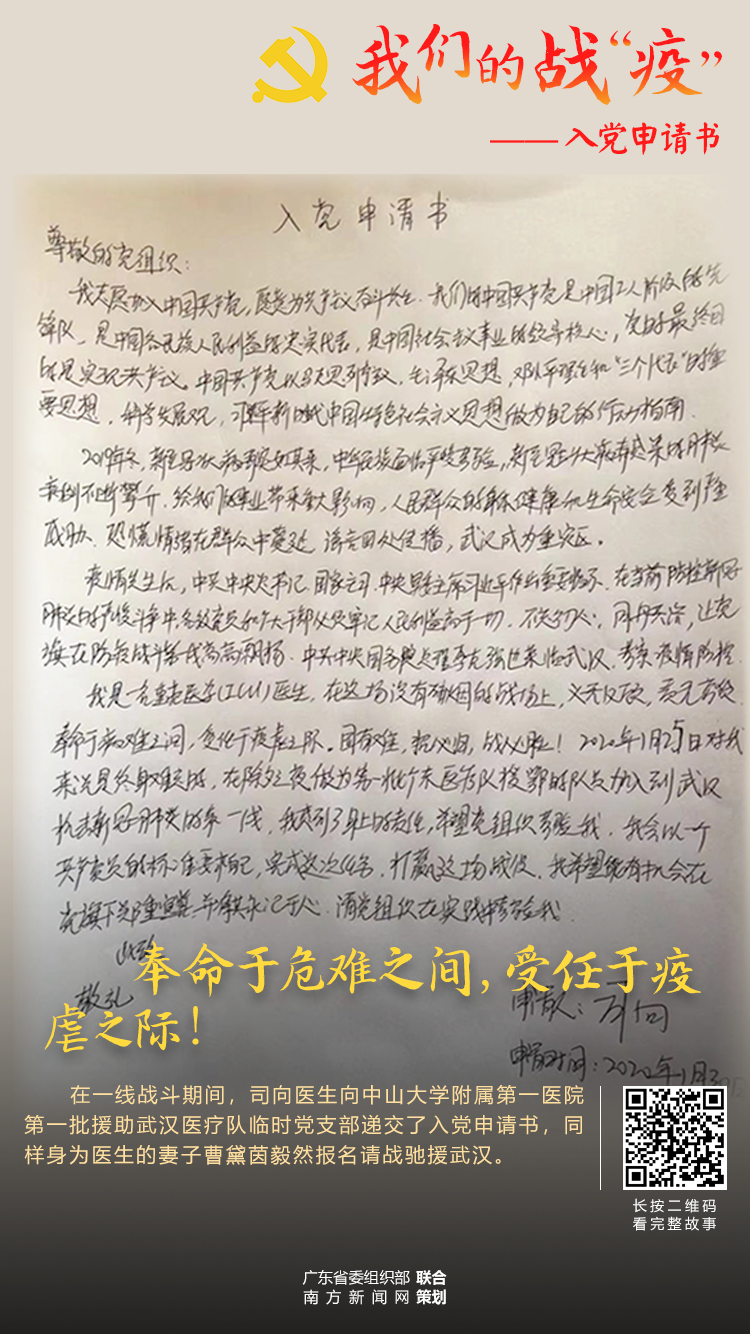 我们的战“疫”
——入党申请书
入党申请书
尊敬的党组织：
我志愿加入中国共产党，愿意为共产主义奋斗终生。我们的中国共产党是中国工人阶级的先
锋队，是中国各民族人民利益的忠实代表，是中国社会主义事业的领导核心，党的最终目
的是实现共产主义。中国共产党以马克思列宁主义、毛泽东思想，邓小平理论和“三个代表”的重
要思想，科学发展观，习近平新时代中国特色社会主义思想做为自己的行动指南。
2019年冬，新型冠状病毒突如其来，中华民族面临严峻考验，新型冠状病毒感染的肺炎
病例不断攀升，给我们的事业带来重大影响，人民群众的身体健康和生命安全受到严重
威胁、恐慌情绪在群众中蔓延，谣言四处传播，武汉成为重灾区。
疫情发生后，中共中央总书记、国家主席、中央军委主席习近平作出重要指示，在当前防控新冠
肺炎的严峻斗争中，各级党员和广大干部必须牢记人民利益高于一切，不忘初心，同舟共济，让党
旗在防疫战斗第一线高高飘扬。中共中央国务院总理李克强也来临武汉，考察疫情防控。
我是一名重症医学(ICU)医生，在这场没有硝烟的战场上，义无反顾，责无旁贷
奉命于危难之间，受任于疫虐之际。国有难，招必归，战必胜！2020年1月25日对我
来说是终身难忘的，在除夕之夜做为第一批广东医疗队援鄂的队员加入到武汉
抗击新冠肺炎的第一线，我感到了身上的责任，希望党组织考验我。我会以一个
共产党员的标准要求自己，完成这次任务，打赢这场战役。我希望能有机会在
党旗下郑重宣誓并将其永记于心。请党组织在实践中考验我。
此致
敬礼
申请人：司向
申请时间：2020年1月30日
奉命于危难之间，受任于疫
虐之际！
在一线战斗期间，司向医生向中山大学附属第一医院
第一批援助武汉医疗队临时党支部递交了入党申请书，同
样身为医生的妻子曹黛茵毅然报名请战驰援武汉。
长按二维码
看完整故事
广东省委组织部 联合
南方新闻网 策划